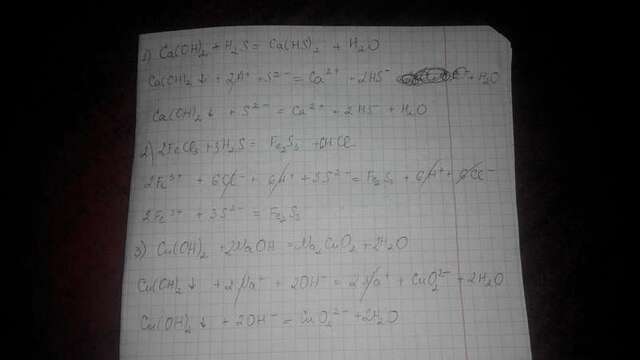 1) Ca(OH)₂ + H₂S = Ca(HS)₂ + H₂O
Ca(OH)₂ ↓ + 2H⁺ + S²⁻ = Ca²⁺ + 2HS⁻ + H₂O
Ca(OH)₂ ↓ + S²⁻ = Ca²⁺ + 2HS⁻ + H₂O
2) 2FeCl₃ + 3H₂S = Fe₂S₃ + 6HCl
2Fe³⁺ + 6Cl⁻ + 6H⁺ + 3S²⁻ = Fe₂S₃ + 6H⁺ + 6Cl⁻
2Fe³⁺ + 3S²⁻ = Fe₂S₃
3) Cu(OH)₂ + 2NaOH = Na₂CuO₂ + 2H₂O
Cu(OH)₂ ↓ + 2Na⁺ + 2OH⁻ = 2Na⁺ + CuO₂²⁻ + 2H₂O
Cu(OH)₂ ↓ + 2OH⁻ = CuO₂²⁻ + 2H₂O